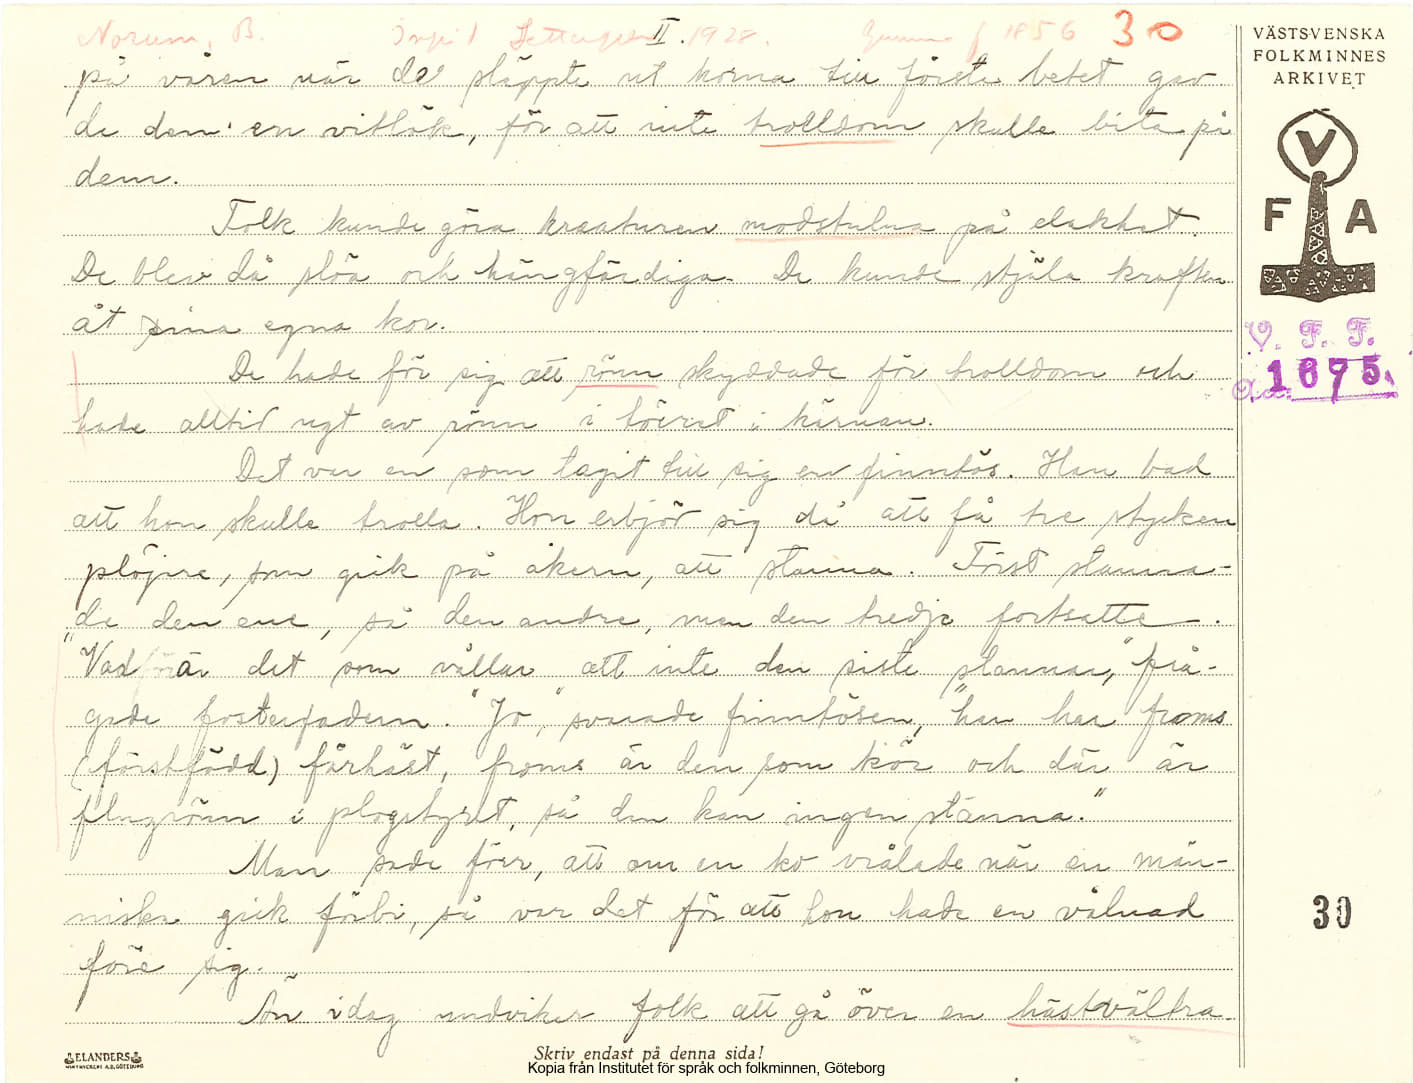 Norum, B. Ingrid II. 1928. f 1856 30
på våren när de släppte ut korna till första betet gav
de dem en vitlök, för att inte trolldom skulle bita på
dem.
Folk kunde göra kreaturen modstulna på elakhet.
De blev då slöa och hängfärdiga. De kunde stjäla kraften
åt sina egna kor.
De hade för sig att rönn skyddade för trolldom och
hade alltid ngt av rönn i i kärnan.
Det var en som tagit till sig en finntös. Han bad
att hon skulle trolla. Hon erbjöd sig då att få tre stycken
plöjare, som gick på åkern, att stanna. Först stanna-
de den ene, så den andre, men den tredje fortsatte.
"Vad är det som vållar att inte den siste stannar," frå-
gade fosterfadern. "Jo," svarade finntösen, "han har froms
(förstfödd) fårhäst, froms är den som kör och där är
flugrönn i plogstyret, så den kan ingen stanna."
Man sade förr, att om en ko vrålade när en män-
niska gick förbi, så var det för att hon hade en vålnad
före sig.
Än idag undviker folk att gå över en hästvältra.
VÄSTSVENSKA
FOLKMINNES
ARKIVET
V
F A
V. F. F.
Acc. 1675.
30
ELANDERS
Skriv endast på denna sida!
Kopia från Institutet för språk och folkminnen, Göteborg